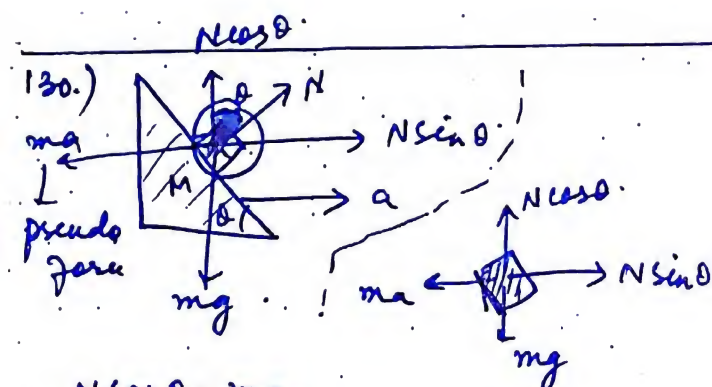 N cos θ.
130.)
θ
N
ma
N sin θ.
↓
pseudo
force
M
θ
a
mg
N cos θ.
ma
N sin θ
mg